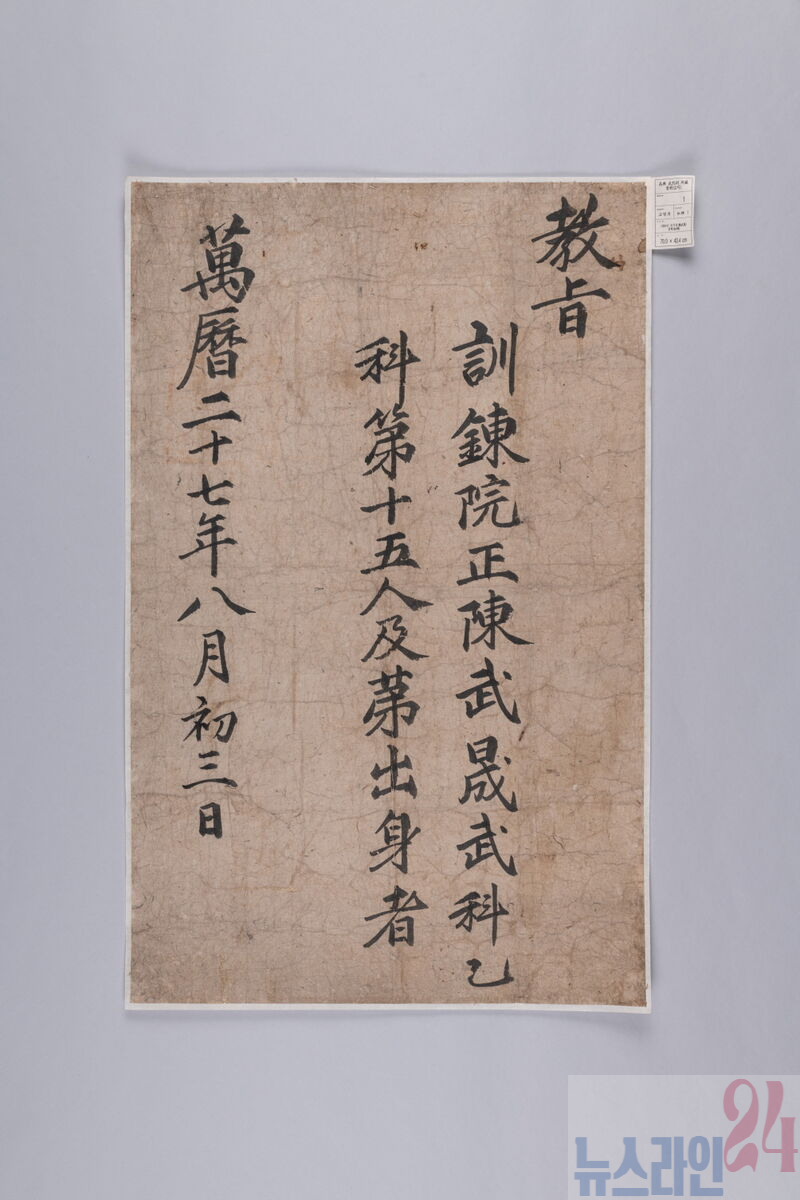 教旨
訓鍊院正陳武晟武科乙
科第十五人及苐出身者
萬曆二十七年八月初三日
1
70.0 × 43.4 cm
뉴스라인24